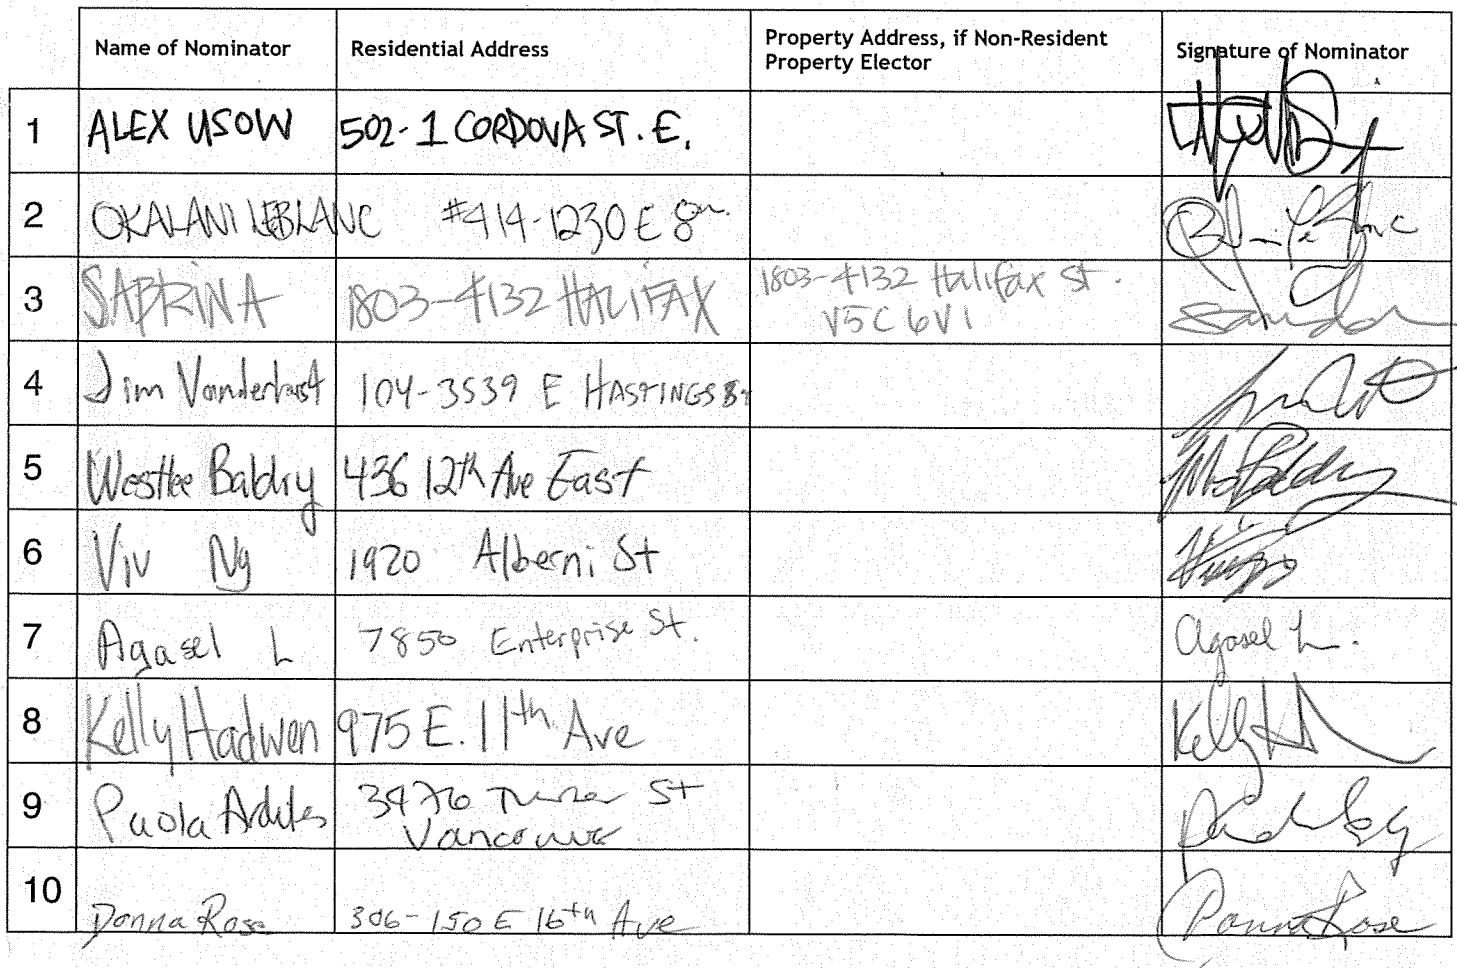 Name of Nominator Residential Address Property Address, if Non-Resident Property Elector Signature of Nominator
1 ALEX USOW 502-1 CORDOVA ST. E.
2 OKALANI LEBLANC #414-1230 E 8th
3 SABRINA 1803-4132 HALIFAX 1803-4132 Halifax St.
V5C 6V1
4 Jim Vanderhorst 104-3539 E HASTINGS St
5 Westlee Baldry 436 12th Ave East
6 Viv Ng 1920 Alberni St
7 Agasel L 7850 Enterprise St. Agasel L.
8 Kelly Hadwen 975 E. 11th Ave Kelly H
9 Paola Ardiles 3476 Turner St
Vancouver
10 Donna Rose 306-150 E 16th Ave Donna Rose